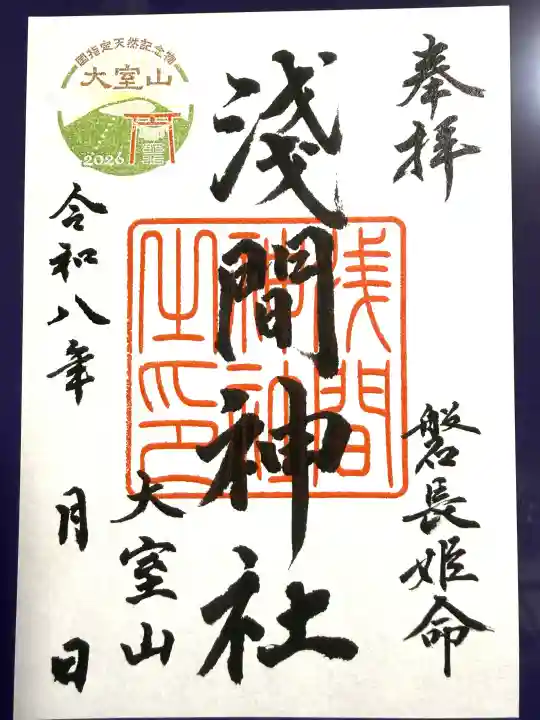 奉拝
磐長姫命
浅間神社
浅間
神社
之印
大室山
令和八年 月 日
国指定天然記念物
大室山
2026